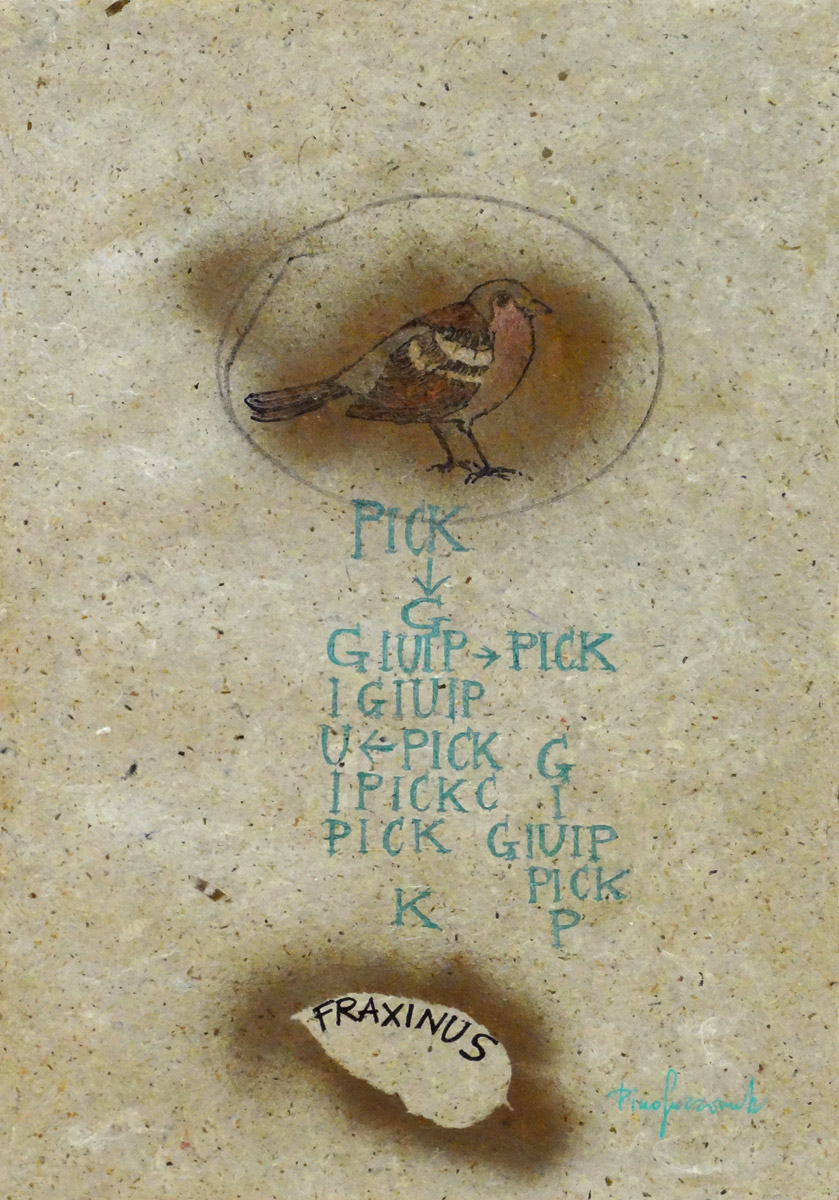 PICK
↓
G
GIUIP→PICK
I GIUIP
U←PICK
G
I PICK C
I
PICK
GIUIP
PICK
K
P
FRAXINUS